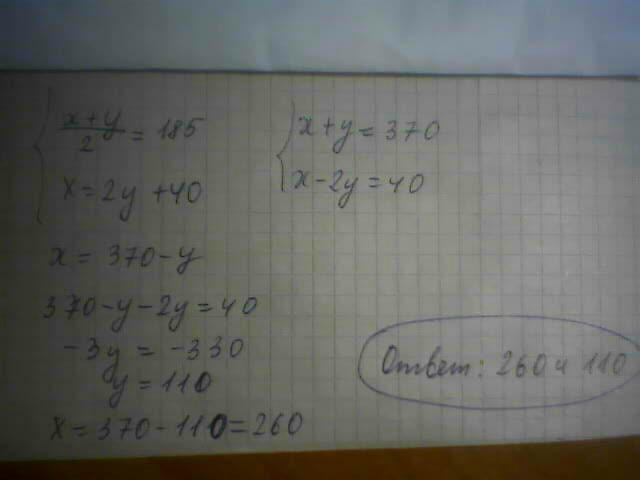 x+y/2 = 185
x = 2y + 40
x + y = 370
x - 2y = 40
x = 370 - y
370 - y - 2y = 40
-3y = -330
y = 110
x = 370 - 110 = 260
Ответ: 260 и 110